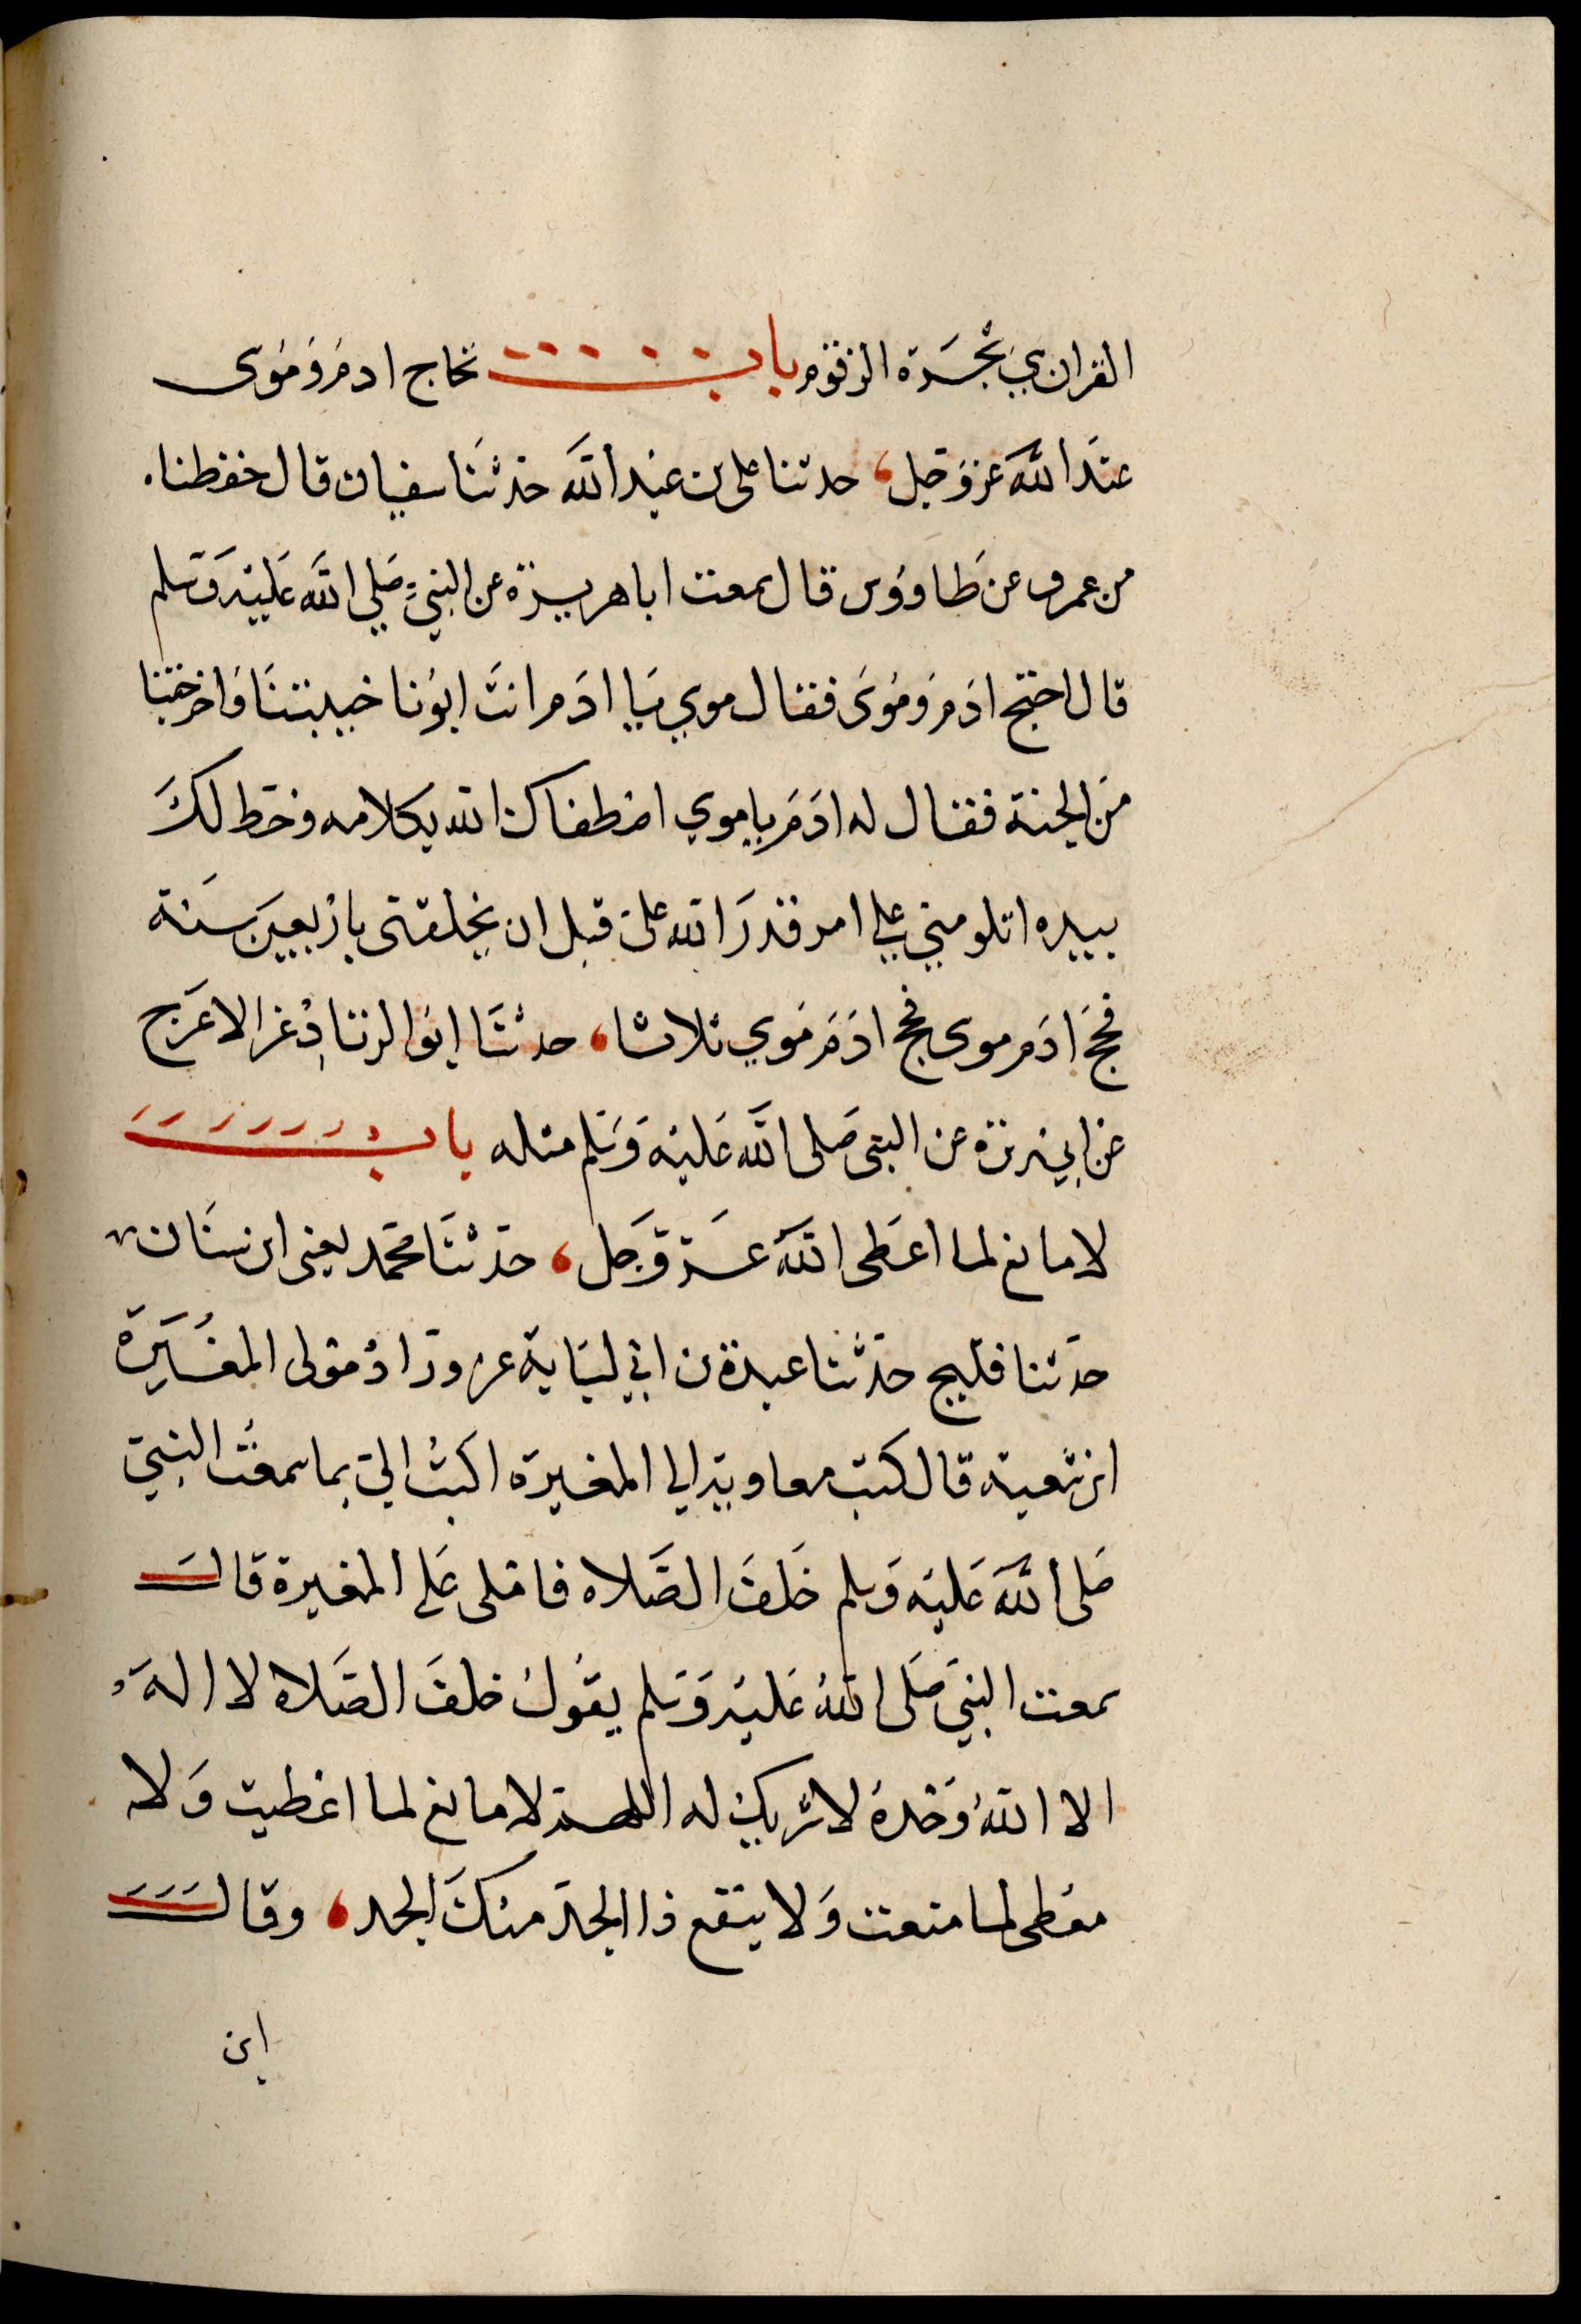 القران هي شجرة الزقوم باب تحاج ادم وموسى
عند الله عز وجل، حدثنا علي بن عبد الله حدثنا سفيان قال حفظناه
من عمرو عن طاووس قال سمعت ابا هريرة عن النبي صلي الله عليه وسلم
قال احتج ادم وموسى فقال موسي يا ادم انت ابونا خيبتنا واخرجتنا
من الجنة فقال له ادم يا موسي اصطفاك الله بكلامه وخط لك
بيده اتلومني علي امر قدر الله علي قبل ان يخلقني باربعين سنة
فحج ادم موسى فحج ادم موسي ثلاثا، حدثنا ابو الزناد عن الاعرج
عن ابي هريرة عن النبي صلى الله عليه وسلم مثله باب
لا مانع لما اعطى الله عز وجل، حدثنا محمد يعني ابن سنان
حدثنا فليح حدثنا عبدة بن ابي لبابة عن وراد مولى المغيرة
ابن شعبة قال كتب معاوية الي المغيرة اكتب الي بما سمعت النبي
صلى الله عليه وسلم خلف الصلاه فاملى علي المغيرة قال
سمعت النبي صلى الله عليه وسلم يقول خلف الصلاه لا اله
الا الله وحده لا شريك له اللهم لا مانع لما اعطيت ولا
معطي لما منعت ولا ينفع ذا الجد منك الجد، وقال
ابن